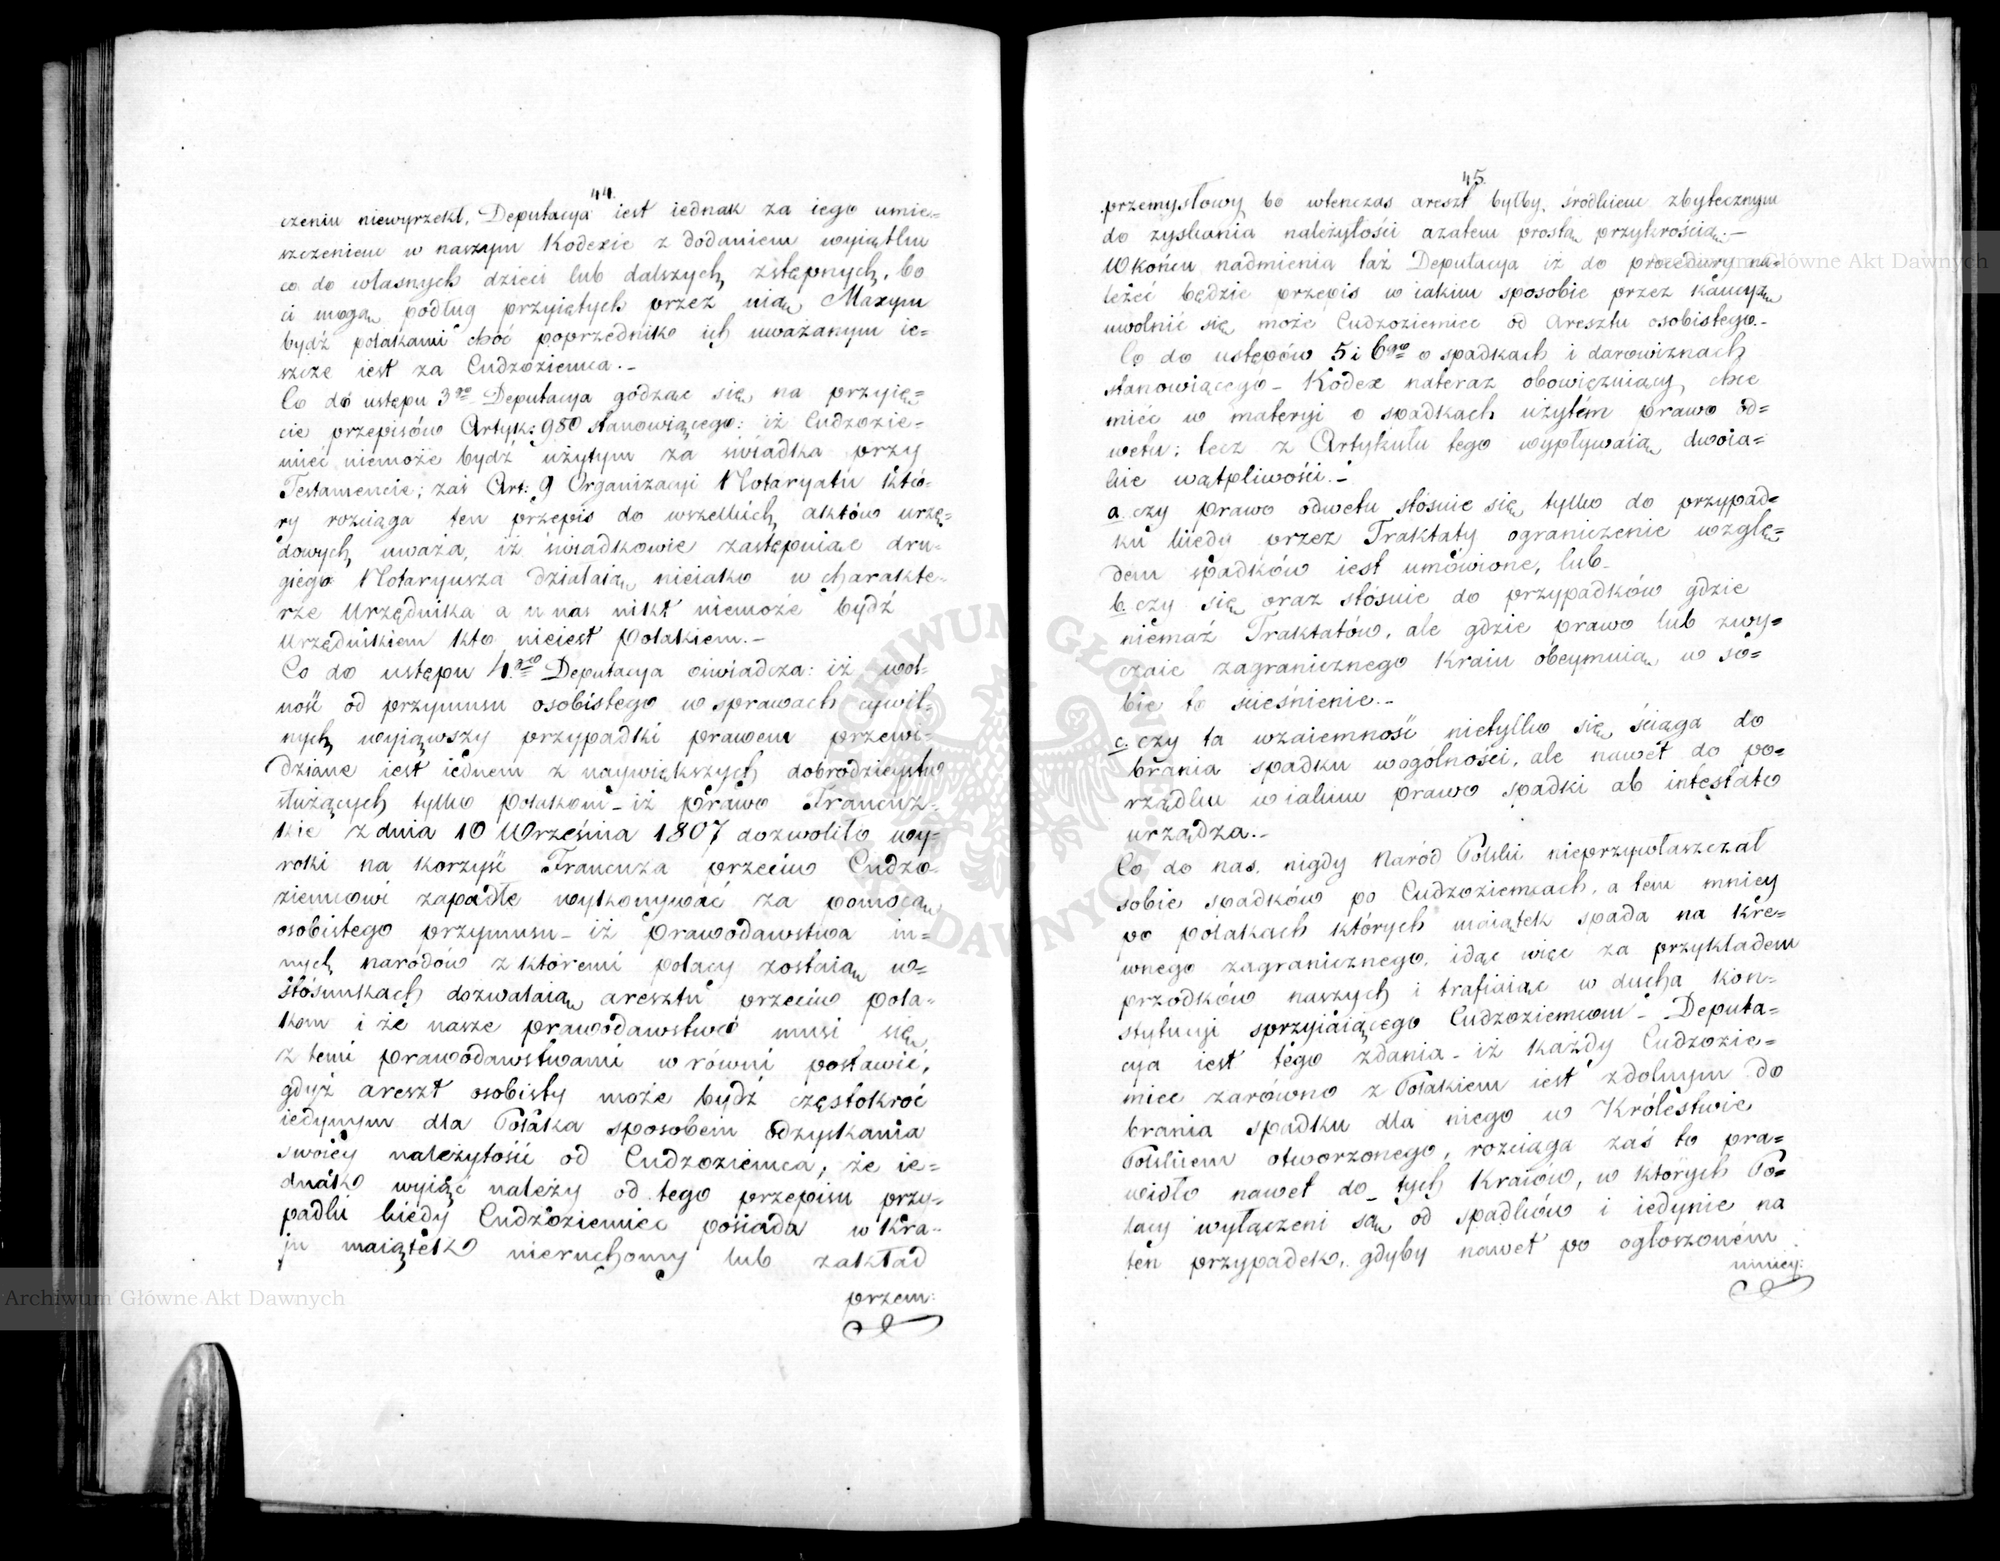 44.
czeniu niewyrzekł, Deputacya iest iednak za iego umie=
szczeniem w naszym Kodexie z dodaniem wyiątku
co do własnych dzieci lub dalszych zstępnych, bo
ci mogą podług przyiętych przez nią Maxym
bydź polakami choć poprzednik ich uważanym ie=
szcze iest za Cudzoziemca.-
Co do ustępu 3go Deputacya godząc się na przyię=
cie przepisów Artyk: 980 stanowiącego: iż Cudzozie=
miec niemoże bydź użytym za świadka przy
Testamencie; zaś Art: 9 Organizacyi Notaryatu któ=
ry rozciąga ten przepis do wszelkich aktów urzę=
dowych uważa, iż świadkowie zastępuiąc dru=
giego Notaryusza działaią nieiako w charakte=
rze Urzędnika a u nas nikt niemoże bydź
Urzędnikiem kto nieiest Polakiem.-
Co do ustępu 4go Deputacya oświadcza: iż wol=
ność od przymusu osobistego w sprawach cywil=
nych wyiąwszy przypadki prawem przewi=
dziane iest iednem z naywiększych dobrodzieystw
służących tylko polakom - iż prawo Francuz=
kie z dnia 10 Września 1807 dozwoliło wy=
roki na korzyść Francuza przeciw Cudzo=
ziemcowi zapadłe wykonywać za pomocą
osobistego przymusu - iż prawodawstwa in=
nych narodów z któremi polacy zostaią w=
stosunkach dozwalaią aresztu przeciw pola=
kom i że nasze prawodawstwo musi się
z temi prawodawstwami w równi postawić,
gdyż areszt osobisty może bydź częstokroć
iedynym dla Polaka sposobem odzyskania
swoiey należytości od Cudzoziemca; że ie=
dnak wyiąć należy od tego przepisu przy=
padki kiedy Cudzoziemiec posiada w Kra=
ju maiątek nieruchomy lub zakład
przem:
45.
przemysłowy bo wtenczas areszt byłby środkiem zbytecznym
do zyskania należytości azatem prostą przykrością.-
W końcu nadmienia taż Deputacya iż do procedury na=
leżeć będzie przepis w iakim sposobie przez kaucyą
uwolnić się może Cudzoziemiec od Aresztu osobistego.-
Co do ustępów 5 i 6go o spadkach i darowiznach
stanowiącego - Kodex nateraz obowięzuiący chce
mieć w materyi o spadkach użytem prawo od=
wetu; lecz z Artykułu tego wypływaią dwoia=
kie wątpliwości.-
a. czy prawo odwetu stosuie się tylko do przypad=
ku kiedy przez Traktaty ograniczenie wzglę=
dem spadków iest umówione, lub-
b. czy się oraz stosuie do przypadków gdzie
niemasz Traktatów, ale gdzie prawo lub zwy=
czaie zagranicznego Kraiu obeymuią w so=
bie to ścieśnienie.-
c. czy ta wzaiemność nietylko się ściąga do
brania spadku wogólności, ale nawet do po=
rządku w iakim prawo spadki ab intestato
urządza.-
Co do nas, nigdy Naród Polski nieprzywłaszczał
sobie spadków po Cudzoziemcach, a tem mniey
po polakach których maiątek spada na kre=
wnego zagranicznego, idąc więc za przykładem
przodków naszych i trafiaiąc w ducha Kon=
stytucyi sprzyiaiącego Cudzoziemcom - Deputa=
cya iest tego zdania - iż każdy Cudzozie=
miec zarówno z Polakiem iest zdolnym do
brania spadku dla niego w Królestwie
Polskiem otworzonego, rozciąga zaś to pra=
widło nawet do tych Kraiów, w których Po=
lacy wyłączeni są od spadków i iedynie na
ten przypadek, gdyby nawet po ogłoszoném
mniey:
Archiwum Główne Akt Dawnych
Archiwum Główne Akt Dawnych
ARCHIWUM GŁÓWNE AKT DAWNYCH